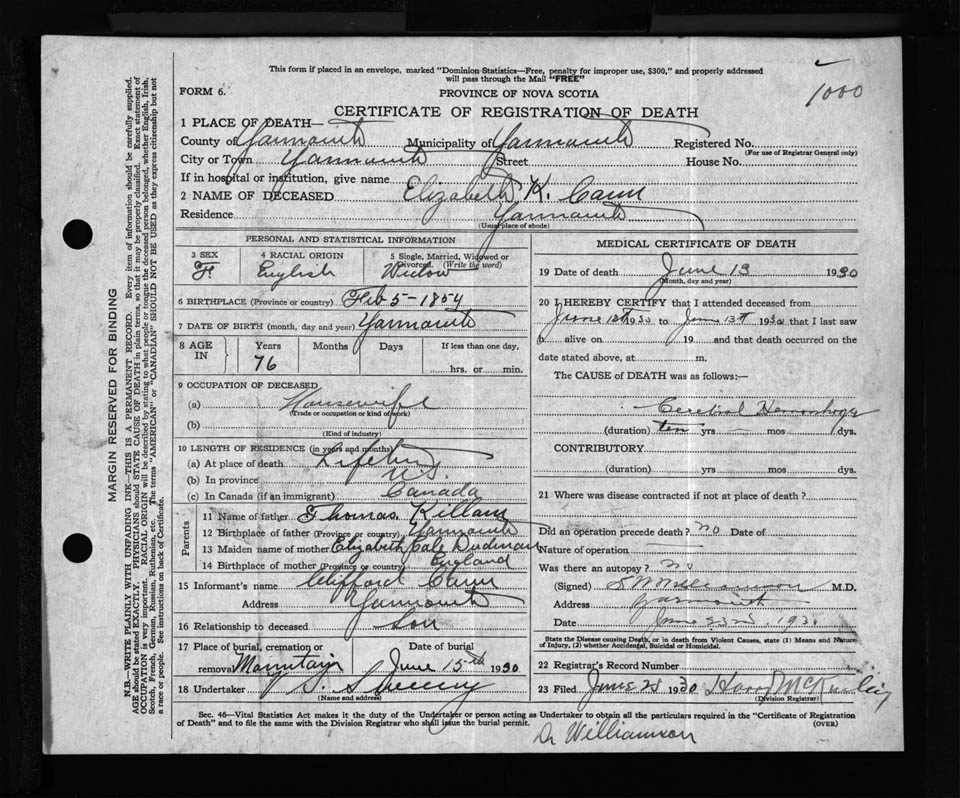 This form if placed in an envelope, marked "Dominion Statistics—Free, penalty for improper use, $300," and properly addressed
will pass through the Mail "FREE"
1000
FORM 6.
PROVINCE OF NOVA SCOTIA
CERTIFICATE OF REGISTRATION OF DEATH
1 PLACE OF DEATH—
County of Yarmouth Municipality of Yarmouth Registered No.
(For use of Registrar General only)
City or Town Yarmouth Street House No.
If in hospital or institution, give name
2 NAME OF DECEASED Elizabeth K. Cann
Residence Yarmouth
(Usual place of abode)
PERSONAL AND STATISTICAL INFORMATION
3 SEX 4 RACIAL ORIGIN 5 Single, Married, Widowed or
Divorced. (Write the word)
F English Widow
6 BIRTHPLACE (Province or country) Feb 5-1854
7 DATE OF BIRTH (month, day and year) Yarmouth
8 AGE IN Years Months Days If less than one day,
76 hrs. or min.
9 OCCUPATION OF DECEASED
(a) Housewife
(Trade or occupation or kind of work)
(b)
(Kind of industry)
10 LENGTH OF RESIDENCE (in years and months)
(a) At place of death Lifetime
(b) In province N.S.
(c) In Canada (if an immigrant) Canada
Parents
11 Name of father Thomas Killam
12 Birthplace of father (Province or country) Yarmouth
13 Maiden name of mother Elizabeth Gale Dudman
14 Birthplace of mother (Province or country) England
15 Informant's name Clifford Cann
Address Yarmouth
16 Relationship to deceased Son
17 Place of burial, cremation or removal Mountain
Date of burial June 15th 1930
18 Undertaker Sweeny
(Name and address)
MEDICAL CERTIFICATE OF DEATH
19 Date of death June 13 1930
(Month, day and year)
20 I HEREBY CERTIFY that I attended deceased from
June 12th 1930 to June 13th 1930 that I last saw
h alive on 19 and that death occurred on the
date stated above, at m.
The CAUSE of DEATH was as follows:—
Cerebral Hemorrhage
(duration) ten yrs — mos / dys.
CONTRIBUTORY
(duration) yrs mos dys.
21 Where was disease contracted if not at place of death?
Did an operation precede death? no Date of
Nature of operation
Was there an autopsy? no
(Signed) Williamson M.D.
Address Yarmouth
Date June 23rd, 1930
State the Disease causing Death, or in death from Violent Causes, state (1) Means and Nature
of Injury, (2) whether Accidental, Suicidal or Homicidal.
22 Registrar's Record Number
23 Filed June 28 1930
(Division Registrar)
Sec. 46—Vital Statistics Act makes it the duty of the Undertaker or person acting as Undertaker to obtain all the particulars required in the "Certificate of Registration
of Death" and to file the same with the Division Registrar who shall issue the burial permit.
(OVER)
Dr Williamson
MARGIN RESERVED FOR BINDING
N.B.—WRITE PLAINLY WITH UNFADING INK—THIS IS A PERMANENT RECORD. Every item of information should be carefully supplied.
AGE should be stated EXACTLY. PHYSICIANS should STATE CAUSE OF DEATH in plain terms, so that it may be properly classified. Exact statement of
OCCUPATION is very important. RACIAL ORIGIN will be described by stating to what people or tongue the deceased person belonged, whether English, Irish,
Scotch, French, German, Russian, Ruthenian, etc. The terms "AMERICAN" or "CANADIAN" SHOULD NOT BE USED as they express citizenship but not
a race or people. See instructions on back of Certificate.